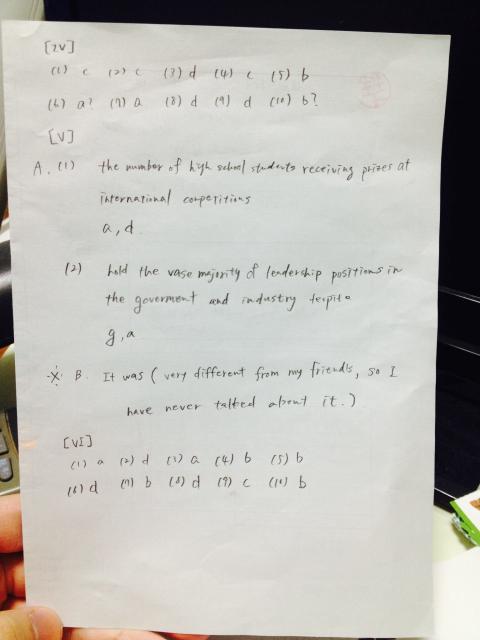 [IV]
(1) c (2) c (3) d (4) c (5) b
(6) a? (7) a (8) d (9) d (10) b?
[V]
A. (1) the number of high school students receiving prizes at
international conpetitions
a, d
(2) hold the vase majority of leadership positions in
the goverment and industry
g, a
※ B. It was ( very different from my friend's, so I
have never talked about it. )
[VI]
(1) a (2) d (3) a (4) b (5) b
(6) d (7) b (8) d (9) c (10) b